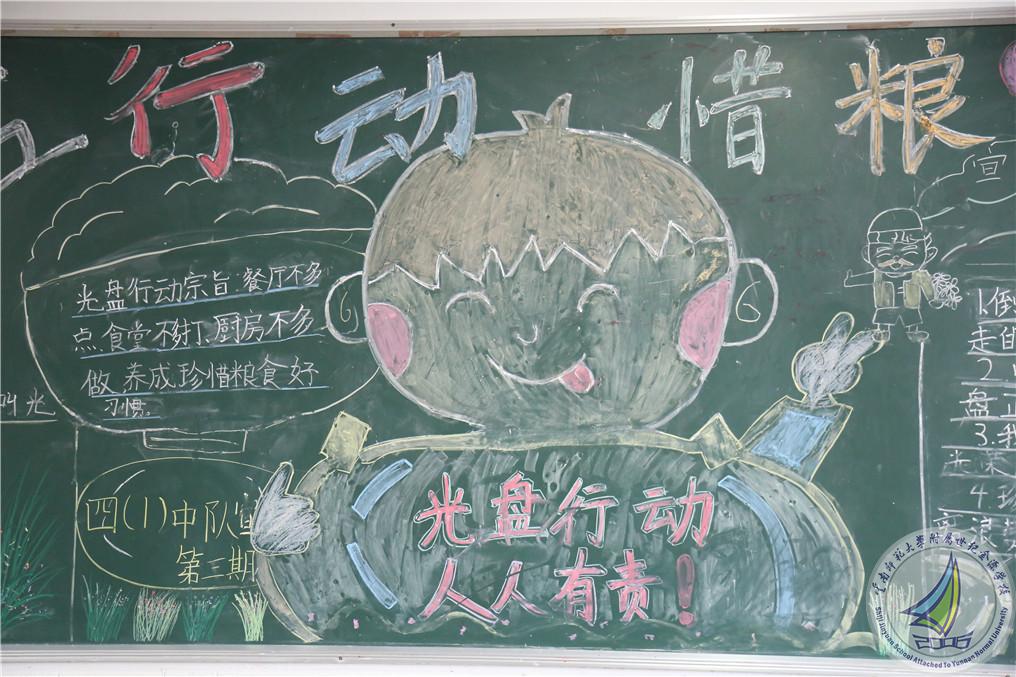 行动 惜粮
光盘行动宗旨:餐厅不多
点.食堂不剩打.厨房不多
做.养成珍惜粮食好
习惯。
叫光
四(1)中队宣
第三期
光盘行动
人人有责!
宣
1.倒
走的
2
盘
3.我
4.珍
云南师范大学附属世纪金源学校
Shijijinyuan School Attached To Yunnan Normal University
2006